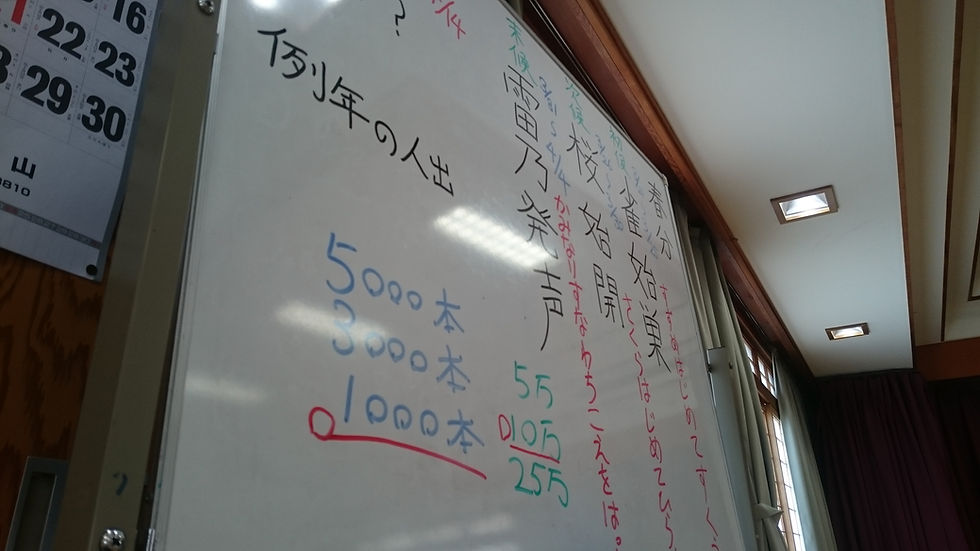 春分
雀始巣
すずめはじめてすーくう
初候
桜始開
さくらはじめてひら
次候
雷乃発声
かみなりすなわちこえをは
末候
5万
10万
25万
例年の人出
?
5000本
3000本
1000本
16
22
23
29
30
山